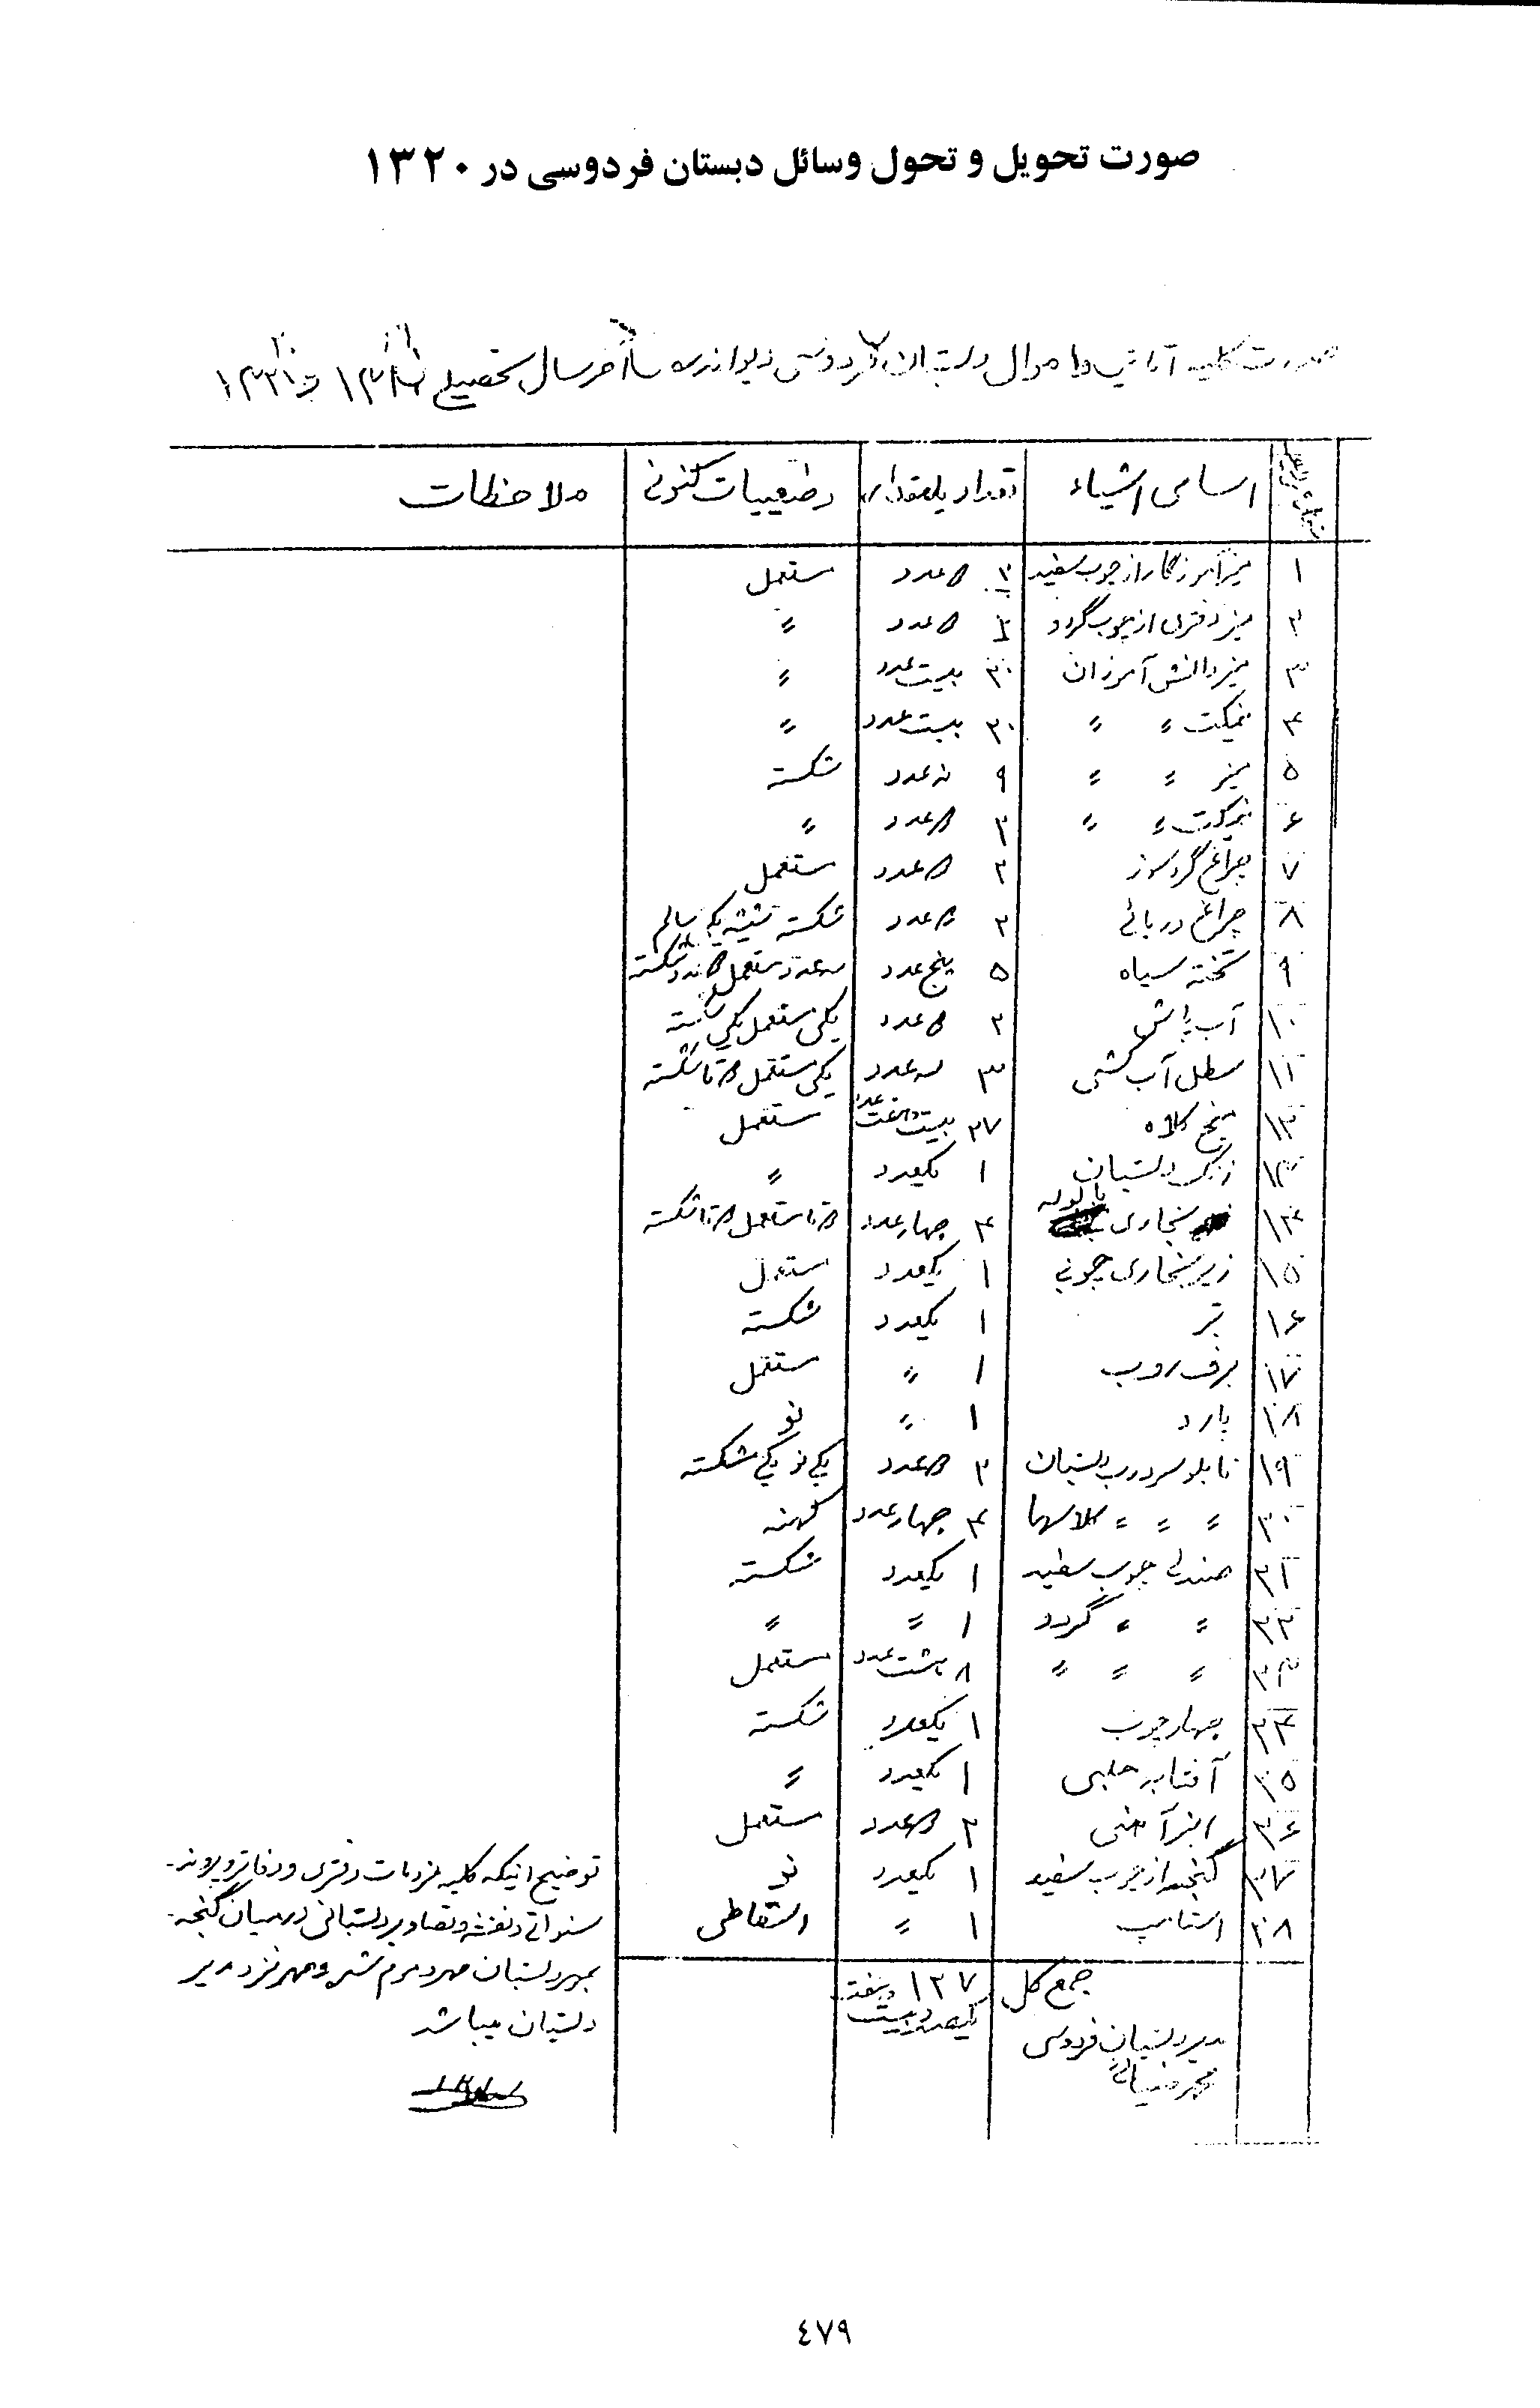 صورت تحویل و تحول وسائل دبستان فردوسی در ۱۳۲۰
صورت کلیه اثاثیه و اموال دبستان فردوسی دیواندره تا آخر سال تحصیلی ۱۳۲۱
اسامی اشیاء تعداد یا مقدار وضعییات کنونی ملاحظات
۱ میز آموزگار از چوب سفید ۲ دو عدد مستعمل
۲ میز دفتری از چوب گردو ۲ دو عدد ″
۳ میز دانش آموزان ۲۰ بیست عدد ″
۴ نیمکت ″ ″ ۲۰ بیست عدد ″
۵ میز ″ ″ ۹ نه عدد شکسته
۶ نیمکت ″ ″ ۲ دو عدد ″
۷ چراغ گردسوز ۲ دو عدد مستعمل
۸ چراغ دریائی ۲ دو عدد شکسته شیشه یکی سالم
۹ تخته سیاه ۵ پنج عدد سه عدد مستعمل دو عدد شکسته
۱۰ آب پاش ۲ دو عدد یکی مستعمل یکی شکسته
۱۱ سطل آب کشی ۳ سه عدد یکی مستعمل دو تا شکسته
۱۲ میخ کلاه ۲۷ بیست و هفت عدد مستعمل
۱۳ زنگ دبستان ۱ یکعدد ″
۱۴ بخاری با لوله ۴ چهار عدد دو تا مستعمل دو تا شکسته
۱۵ زیر بخاری چوبی ۱ یکعدد مستعمل
۱۶ تبر ۱ یکعدد شکسته
۱۷ برف روب ۱ ″ مستعمل
۱۸ پارو ۱ ″ نو
۱۹ تابلو سردرب دبستان ۲ دو عدد یکی نو یکی شکسته
۲۰ ″ ″ ″ کلاسها ۴ چهار عدد کهنه
۲۱ صندلی چوب سفید ۱ یکعدد شکسته
۲۲ ″ ″ گردو ۱ ″ ″
۲۳ ″ ″ ″ ۸ هشت عدد مستعمل
۲۴ چهار چوب ۱ یکعدد شکسته
۲۵ آفتابه حلبی ۱ یکعدد ″
۲۶ انبر آهنی ۲ دو عدد مستعمل
۲۷ گنجه از چوب سفید ۱ یکعدد نو
۲۸ استامپ ۱ ″ اسقاطی
توضیح اینکه کلیه ملزومات دفتری و دفاتر و پرونده
سنواتی و نقشه و تصاویر دبستانی در میان گنجه
بمهر دبستان مهر و موم شد و مهر نزد مدیر
دبستان میباشد
جمع کل ۱۲۷ یکصد و بیست و هفت
مدیر دبستان فردوسی
٤٧٩